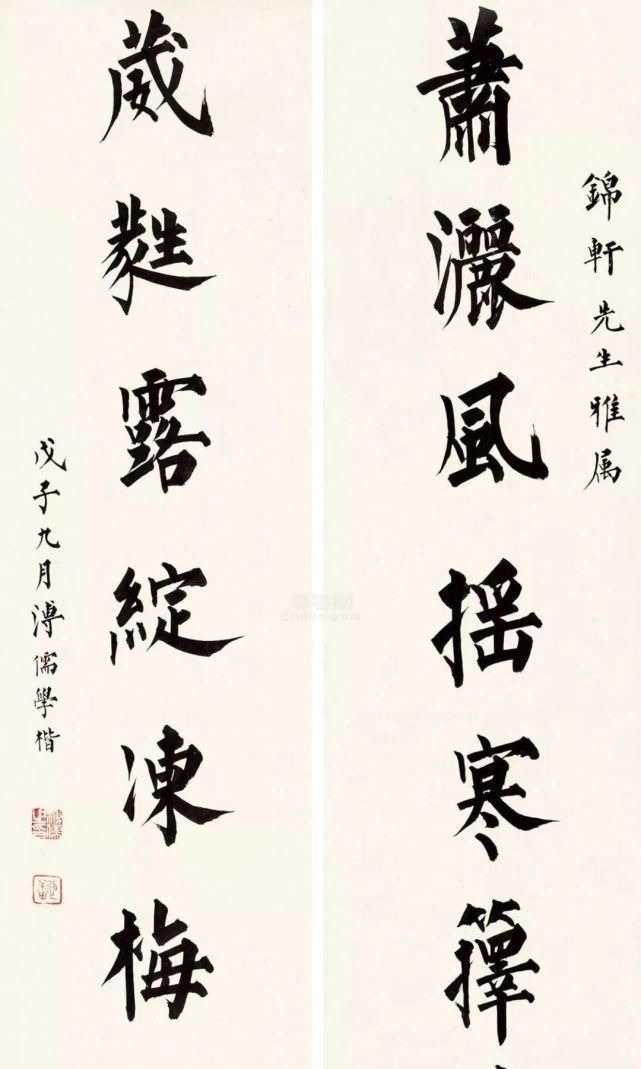 錦軒先生雅属
蕭灑風摇寒籜
葳蕤露綻凍梅
戊子九月溥儒學楷